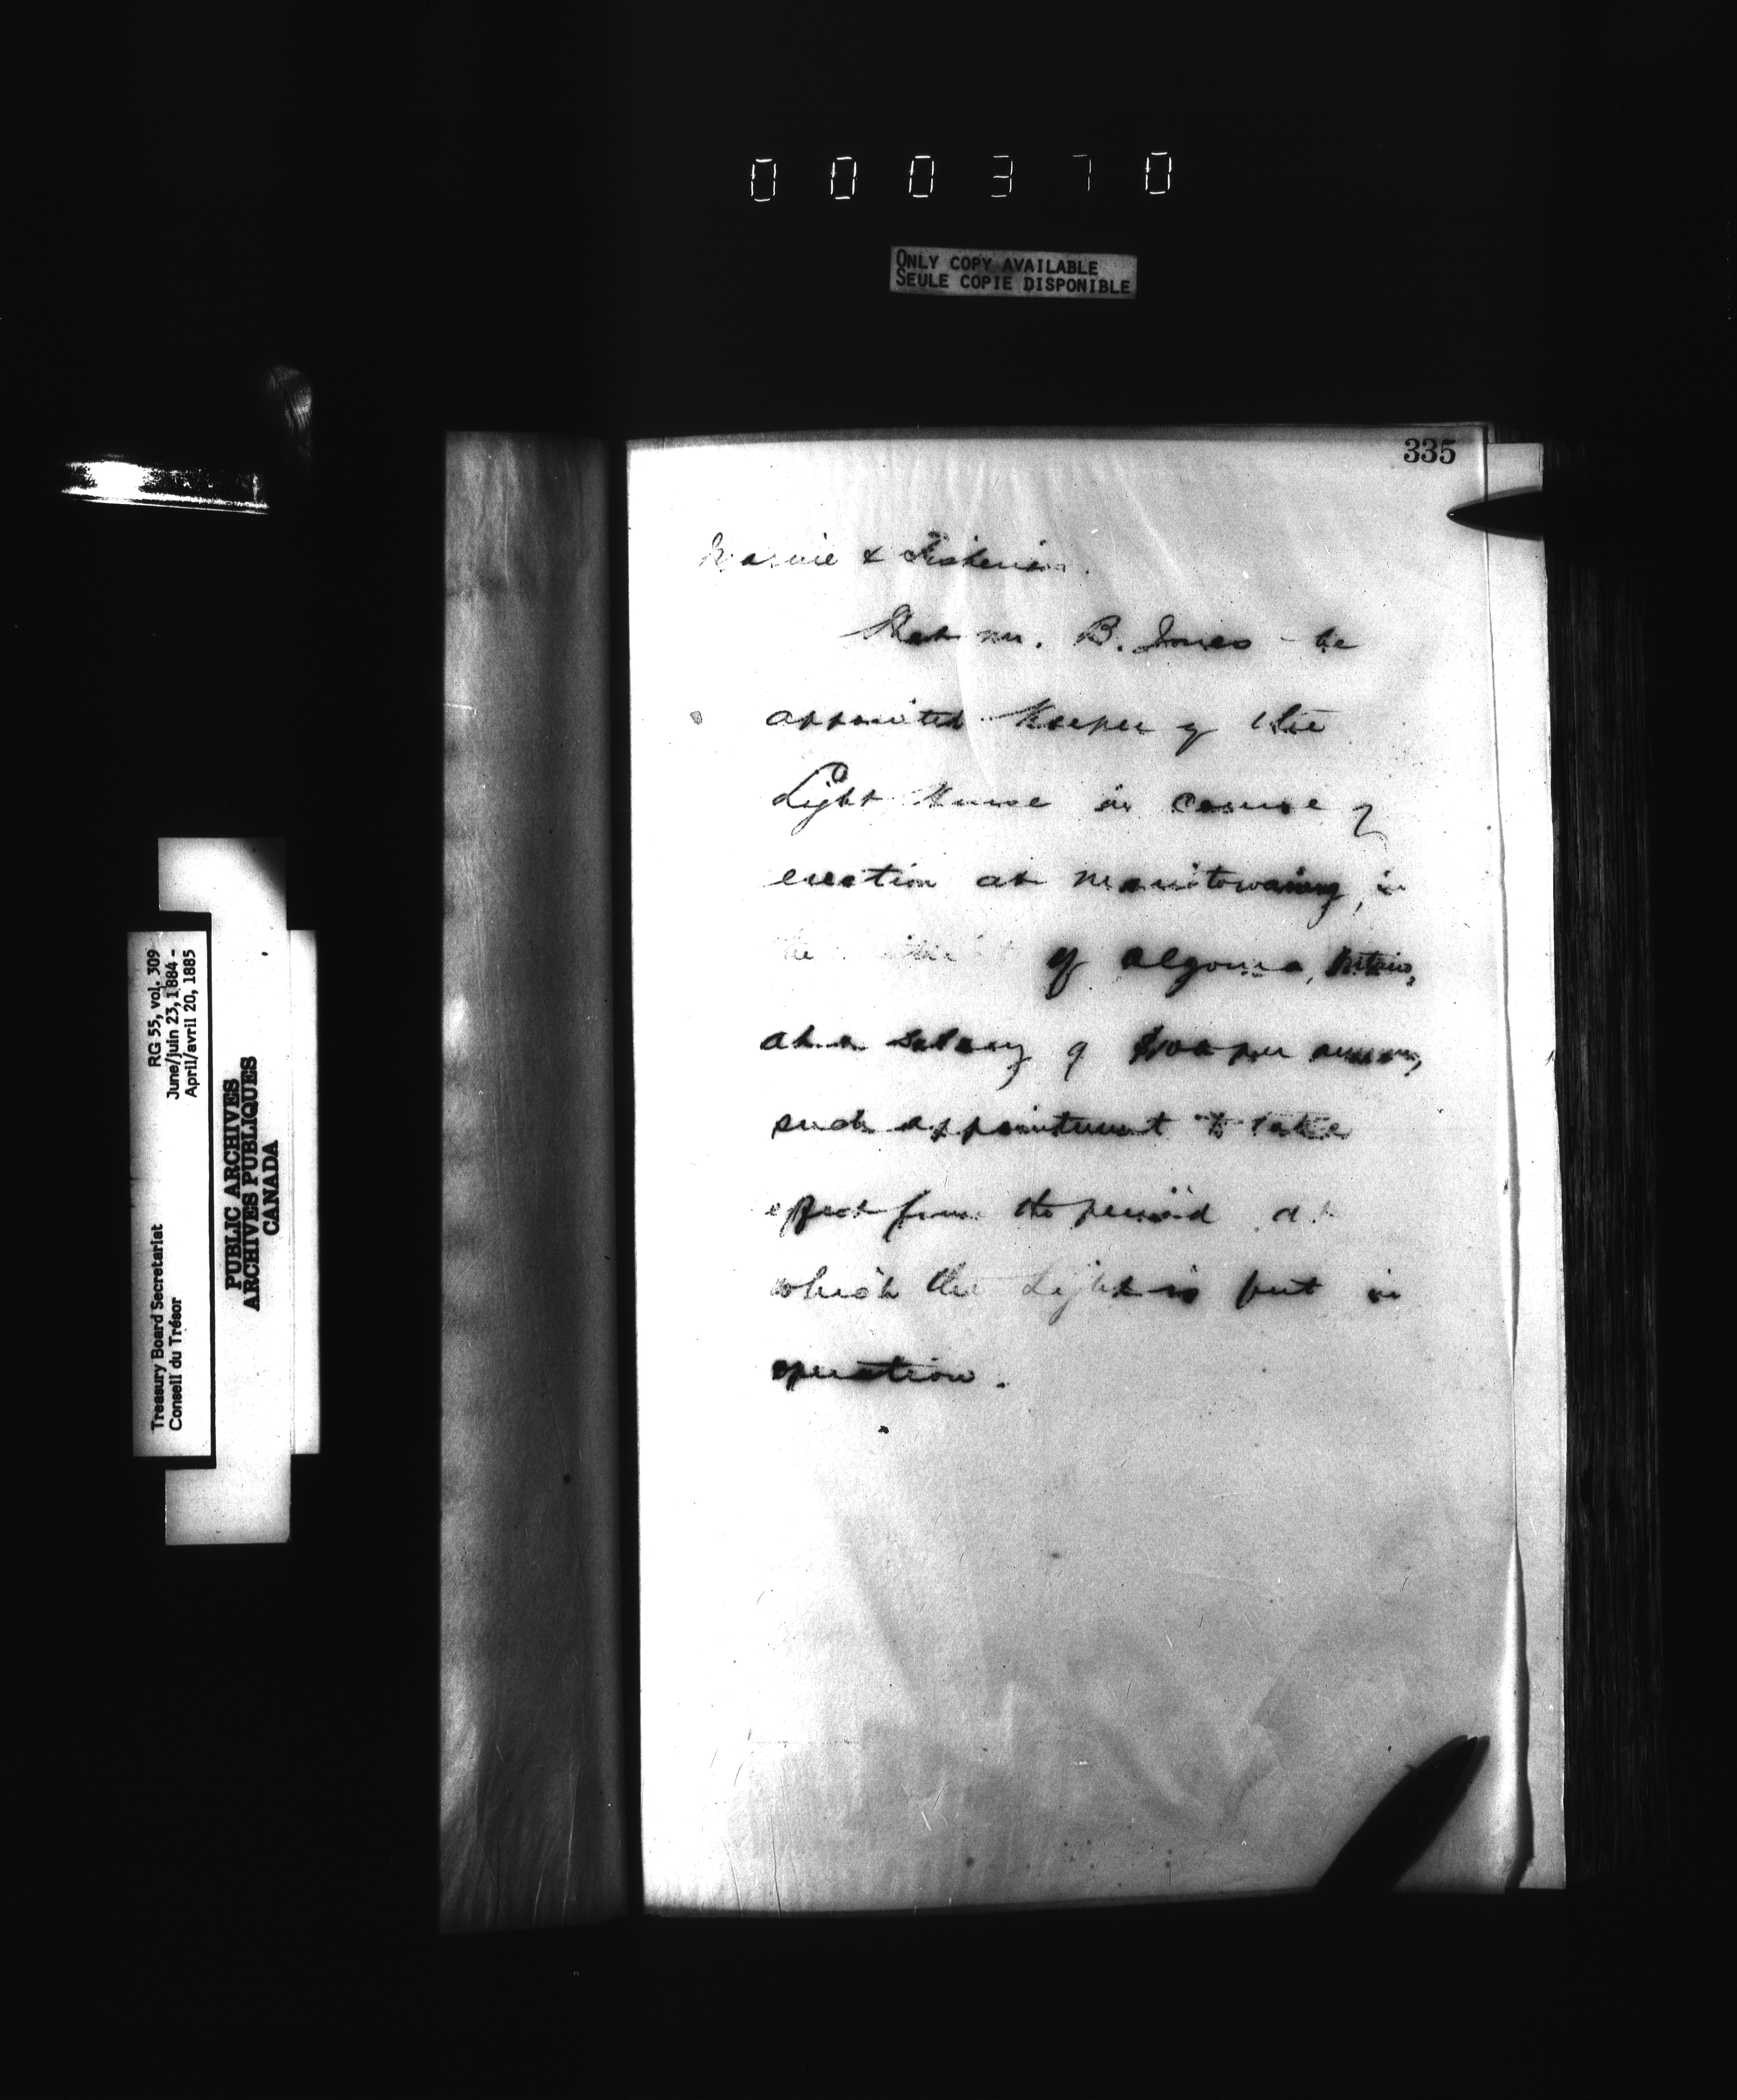 000370
ONLY COPY AVAILABLE
SEULE COPIE DISPONIBLE
335
Marine & Fisheries.
That Mr. B. Jones be
appointed Keeper of the
Light House in course of
erection at Manitowaning, in
the District of Algoma, Ontario,
at a salary of per annum,
such appointment to take
effect from the period at
which the Light is put in
operation.
Treasury Board Secretariat RG 55, vol. 309
Conseil du Trésor June/juin 23, 1884 -
April/avril 20, 1885
PUBLIC ARCHIVES
ARCHIVES PUBLIQUES
CANADA